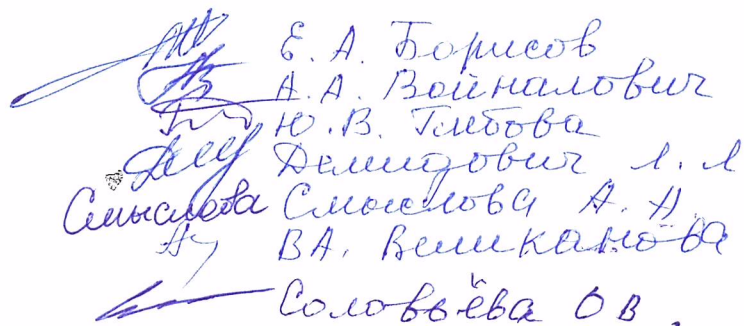 Е. А. Борисов
А. А. Войналович
Ю. В. Глебова
Демидович Л. Л
Смыслова Смыслова А. А.
В А. Великанова
Соловьёва О В.